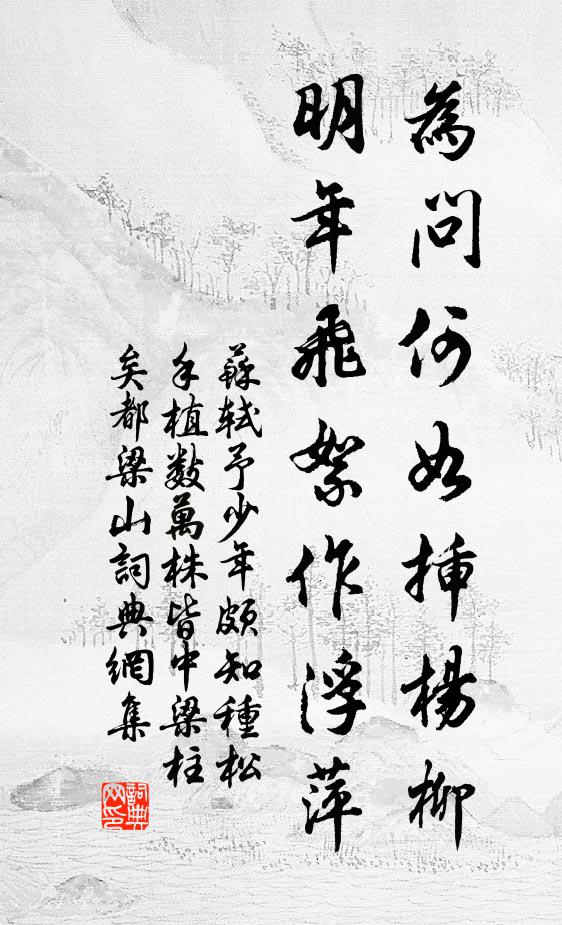 為問何如揷楊柳
明年飛絮作浮萍
蘇軾予少年頗知種松
手植數萬株皆中梁柱
矣都梁山詞典網集
詞典
网印